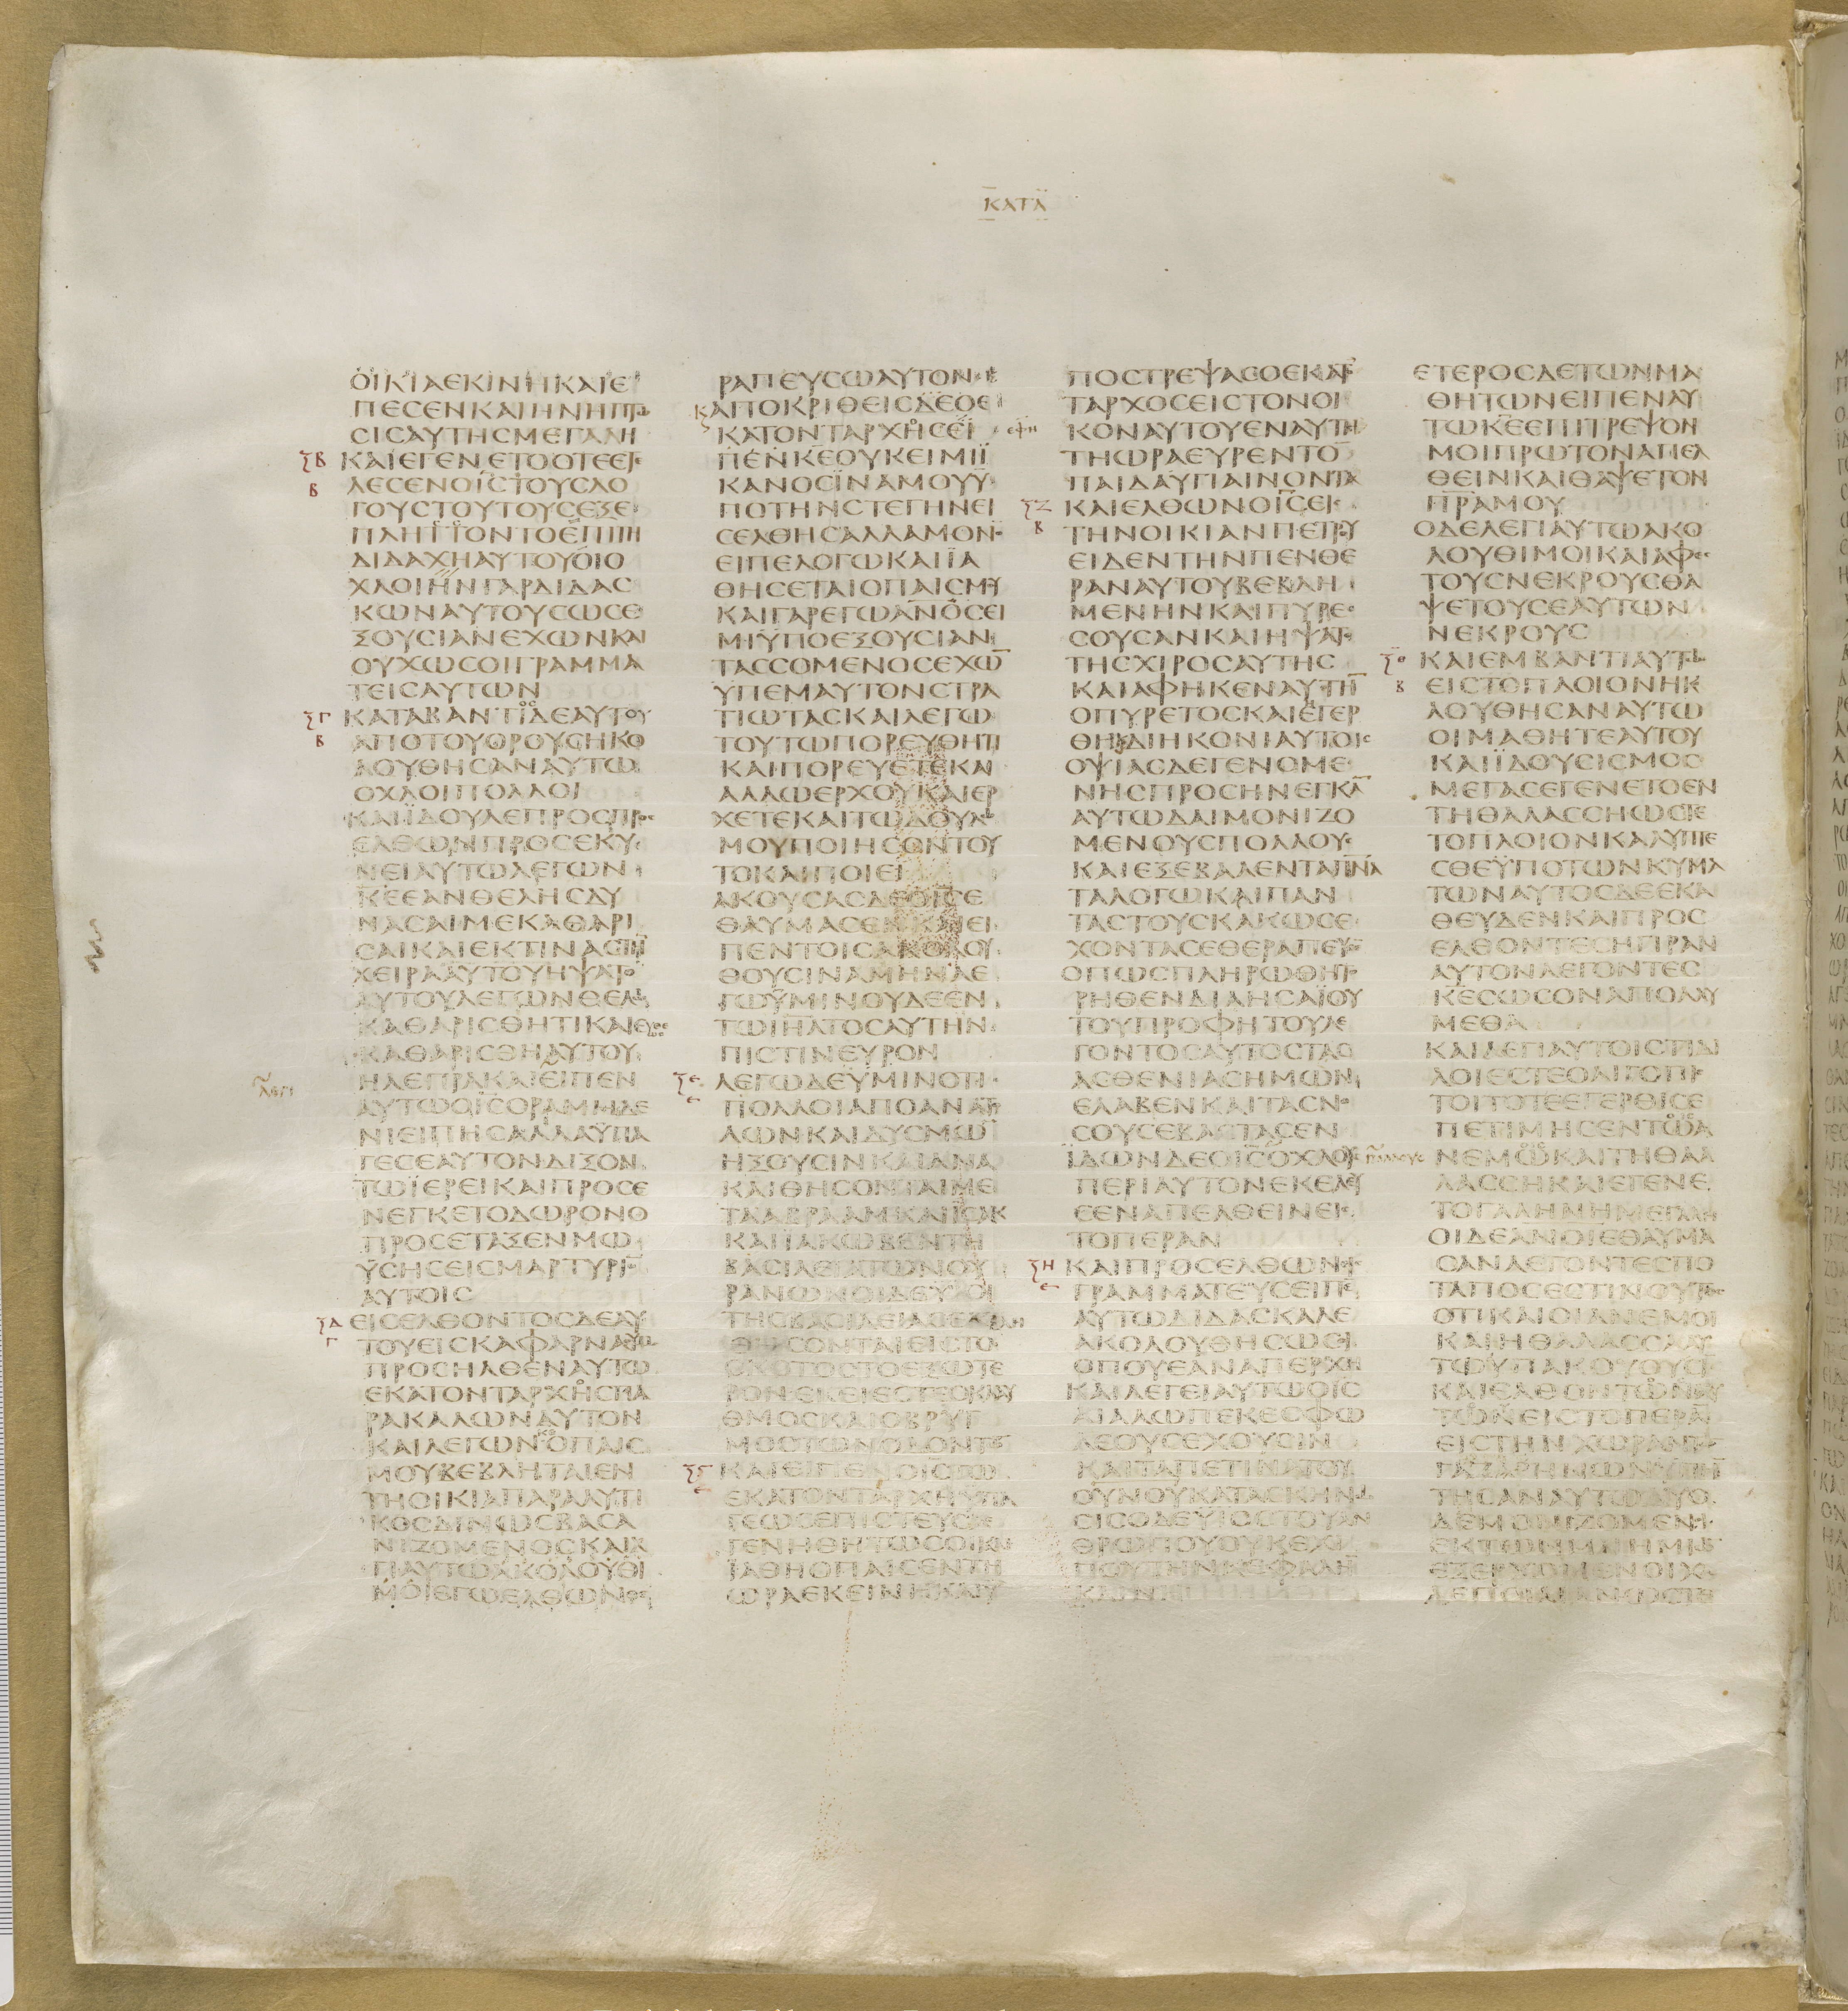 ΚΑΤΑ
ΟΙΚΙΑΕΚΙΝΗΚΑΙΕ
ΠΕCΕΝΚΑΙΗΝΗΠΤΩ
CΙCΑΥΤΗCΜΕΓΑΛΗ
ΚΑΙΕΓΕΝΕΤΟΟΤΕΕΤΕ
ΛΕCΕΝΟΙCΤΟΥCΛΟ
ΓΟΥCΤΟΥΤΟΥCΕΞΕ
ΠΛΗΤΤΟΝΤΟΕΠΙΤΗ
ΔΙΔΑΧΗΑΥΤΟΥΟΙΟ
ΧΛΟΙΗΝΓΑΡΔΙΔΑC
ΚΩΝΑΥΤΟΥCΩCΕ
ΞΟΥCΙΑΝΕΧΩΝΚΑΙ
ΟΥΧΩCΟΙΓΡΑΜΜΑ
ΤΕΙCΑΥΤΩΝ
ΚΑΤΑΒΑΝΤΙΔΕΑΥΤΟΥ
ΑΠΟΤΟΥΟΡΟΥCΗΚΟ
ΛΟΥΘΗCΑΝΑΥΤΩ
ΟΧΛΟΙΠΟΛΛΟΙ
ΚΑΙΪΔΟΥΛΕΠΡΟCΠΡΟC
ΕΛΘΩΝΠΡΟCΕΚΥ
ΝΕΙΑΥΤΩΛΕΓΩΝ
ΚΕΕΑΝΘΕΛΗCΔΥ
ΝΑCΑΙΜΕΚΑΘΑΡΙ
CΑΙΚΑΙΕΚΤΙΝΑCΤΗΝ
ΧΕΙΡΑΑΥΤΟΥΗΨΑΤΟ
ΑΥΤΟΥΛΕΓΩΝΘΕΛΩ
ΚΑΘΑΡΙCΘΗΤΙΚΑΙΕΥΘΕΩC
ΚΑΘΑΡΙCΘΗΑΥΤΟΥ
ΗΛΕΠΡΑΚΑΙΕΙΠΕΝ
ΑΥΤΩΟΙCΟΡΑΜΗΔΕ
ΝΙΕΙΠΗCΑΛΛΑΫΠΑ
ΓΕCΕΑΥΤΟΝΔΙΞΟΝ
ΤΩΪΕΡΕΙΚΑΙΠΡΟCΕ
ΝΕΓΚΕΤΟΔΩΡΟΝΟ
ΠΡΟCΕΤΑΞΕΝΜΩ
ΫCΗCΕΙCΜΑΡΤΥΡΙ
ΑΥΤΟΙC
ΕΙCΕΛΘΟΝΤΟCΔΕΑΥ
ΤΟΥΕΙCΚΑΦΑΡΝΑΟΥΜ
ΠΡΟCΗΛΘΕΝΑΥΤΩ
ΕΚΑΤΟΝΤΑΡΧΗCΠΑ
ΡΑΚΑΛΩΝΑΥΤΟΝ
ΚΑΙΛΕΓΩΝΟΠΑΙC
ΜΟΥΒΕΒΛΗΤΑΙΕΝ
ΤΗΟΙΚΙΑΠΑΡΑΛΥΤΙ
ΚΟCΔΙΝΩCΒΑCΑ
ΝΙΖΟΜΕΝΟCΚΑΙΛΕ
ΓΙΑΥΤΩΑΚΟΛΟΥΘΙ
ΜΟΙΕΓΩΕΛΘΩΝΘΕ
ΡΑΠΕΥCΩΑΥΤΟΝ
ΑΠΟΚΡΙΘΕΙCΔΕΟΕ
ΚΑΤΟΝΤΑΡΧΗCΕΙ
ΠΕΝΚΕΟΥΚΕΙΜΙΪ
ΚΑΝΟCΪΝΑΜΟΥΫ
ΠΟΤΗΝCΤΕΓΗΝΕΙ
CΕΛΘΗCΑΛΛΑΜΟΝΟΝ
ΕΙΠΕΛΟΓΩΚΑΙΪΑ
ΘΗCΕΤΑΙΟΠΑΙCΜΟΥ
ΚΑΙΓΑΡΕΓΩΑΝΟCΕΙ
ΜΙΫΠΟΕΞΟΥCΙΑΝ
ΤΑCCΟΜΕΝΟCΕΧΩ
ΫΠΕΜΑΥΤΟΝCΤΡΑ
ΤΙΩΤΑCΚΑΙΛΕΓΩ
ΤΟΥΤΩΠΟΡΕΥΘΗΤΙ
ΚΑΙΠΟΡΕΥΕΤΕΚΑΙ
ΑΛΛΩΕΡΧΟΥΚΑΙΕΡ
ΧΕΤΕΚΑΙΤΩΔΟΥΛΩ
ΜΟΥΠΟΙΗCΟΝΤΟΥ
ΤΟΚΑΙΠΟΙΕΙ
ΑΚΟΥCΑCΔΕΟΙCΕ
ΘΑΥΜΑCΕΝΚΑΙΕΙ
ΠΕΝΤΟΙCΑΚΟΛΟΥ
ΘΟΥCΙΝΑΜΗΝΛΕ
ΓΩΫΜΙΝΟΥΔΕΕΝ
ΤΩΙΗΛΤΟCΑΥΤΗΝ
ΠΙCΤΙΝΕΥΡΟΝ
ΛΕΓΩΔΕΫΜΙΝΟΤΙ
ΠΟΛΛΟΙΑΠΟΑΝΑΤΟ
ΛΩΝΚΑΙΔΥCΜΩ
ΗΞΟΥCΙΝΚΑΙΑΝΑ
ΚΛΙΘΗCΟΝΤΑΙΜΕ
ΤΑΑΒΡΑΑΜΚΑΙΪCΑΚ
ΚΑΙΙΑΚΩΒΕΝΤΗ
ΒΑCΙΛΕΙΑΤΩΝΟΥ
ΡΑΝΩΝΟΙΔΕΥΙΟΙ
ΤΗCΒΑCΙΛΕΙΑC
ΘΗCΟΝΤΑΙΕΙCΤΟ
CΚΟΤΟCΤΟΕΞΩΤΕ
ΡΟΝΕΚΕΙΕCΤΕΟΚΛΑΥ
ΘΜΟCΚΑΙΟΒΡΥΓ
ΜΟCΤΩΝΟΔΟΝΤΩ
ΚΑΙΕΙΠΕΝΟΙCΤΩ
ΕΚΑΤΟΝΤΑΡΧΗΫΠΑ
ΓΕΩCΕΠΙCΤΕΥCΑC
ΓΕΝΗΘΗΤΩCΟΙΚΑΙ
ΙΑΘΗΟΠΑΙCΕΝΤΗ
ΩΡΑΕΚΕΙΝΗΚΑΙΥ
ΠΟCΤΡΕΨΑCΟΕΚΑΤΟ
ΤΑΡΧΟCΕΙCΤΟΝΟΙ
ΚΟΝΑΥΤΟΥΕΝΑΥΤΗ
ΤΗΩΡΑΕΥΡΕΝΤΟ
ΠΑΙΔΑΥΓΙΑΙΝΟΝΤΑ
ΚΑΙΕΛΘΩΝΟΙCΕΙC
ΤΗΝΟΙΚΙΑΝΠΕΤΡΟΥ
ΕΙΔΕΝΤΗΝΠΕΝΘΕ
ΡΑΝΑΥΤΟΥΒΕΒΛΗ
ΜΕΝΗΝΚΑΙΠΥΡΕC
CΟΥCΑΝΚΑΙΗΨΑΤΟ
ΤΗCΧΙΡΟCΑΥΤΗC
ΚΑΙΑΦΗΚΕΝΑΥΤΗ
ΟΠΥΡΕΤΟCΚΑΙΕΓΕΡ
ΘΗΚΑΙΔΙΗΚΟΝΙΑΥΤΟΙC
ΟΨΙΑCΔΕΓΕΝΟΜΕ
ΝΗCΠΡΟCΗΝΕΓΚΑ
ΑΥΤΩΔΑΙΜΟΝΙΖΟ
ΜΕΝΟΥCΠΟΛΛΟΥC
ΚΑΙΕΞΕΒΑΛΕΝΤΑΠΝΑ
ΤΑΛΟΓΩΚΑΙΠΑΝ
ΤΑCΤΟΥCΚΑΚΩCΕ
ΧΟΝΤΑCΕΘΕΡΑΠΕΥCΕ
ΟΠΩCΠΛΗΡΩΘΗΤΟ
ΡΗΘΕΝΔΙΑΗCΑΪΟΥ
ΤΟΥΠΡΟΦΗΤΟΥΛΕ
ΓΟΝΤΟCΑΥΤΟCΤΑC
ΑCΘΕΝΙΑCΗΜΩΝ
ΕΛΑΒΕΝΚΑΙΤΑCΝΟ
CΟΥCΕΒΑCΤΑCΕΝ
ΪΔΩΝΔΕΟΙCΟΧΛΟΥC
ΠΕΡΙΑΥΤΟΝΕΚΕΛΕΥ
CΕΝΑΠΕΛΘΕΙΝΕΙC
ΤΟΠΕΡΑΝ
ΚΑΙΠΡΟCΕΛΘΩΝΕΙC
ΓΡΑΜΜΑΤΕΥCΕΙΠΕ
ΑΥΤΩΔΙΔΑCΚΑΛΕ
ΑΚΟΛΟΥΘΗCΩCΟΙ
ΟΠΟΥΕΑΝΑΠΕΡΧΗ
ΚΑΙΛΕΓΕΙΑΥΤΩΟΙC
ΑΙΑΛΩΠΕΚΕCΦΩ
ΛΕΟΥCΕΧΟΥCΙΝ
ΚΑΙΤΑΠΕΤΙΝΑΤΟΥ
ΟΥΝΟΥΚΑΤΑCΚΗΝΩ
CΙCΟΔΕΫΙΟCΤΟΥΑΝ
ΘΡΩΠΟΥΟΥΚΕΧΙ
ΠΟΥΤΗΝΚΕΦΑΛΗ
ΚΛΙΝΗ
ΕΤΕΡΟCΔΕΤΩΝΜΑ
ΘΗΤΩΝΕΙΠΕΝΑΥ
ΤΩΚΕΕΠΙΤΡΕΨΟΝ
ΜΟΙΠΡΩΤΟΝΑΠΕΛ
ΘΕΙΝΚΑΙΘΑΨΕΤΟΝ
ΠΡΑΜΟΥ
ΟΔΕΛΕΓΙΑΥΤΩΑΚΟ
ΛΟΥΘΙΜΟΙΚΑΙΑΦΕC
ΤΟΥCΝΕΚΡΟΥCΘΑ
ΨΕΤΟΥCΕΑΥΤΩΝ
ΝΕΚΡΟΥC
ΚΑΙΕΜΒΑΝΤΙΑΥΤΩ
ΕΙCΤΟΠΛΟΙΟΝΗΚ
ΛΟΥΘΗCΑΝΑΥΤΩ
ΟΙΜΑΘΗΤΕΑΥΤΟΥ
ΚΑΙΪΔΟΥCΙCΜΟC
ΜΕΓΑCΕΓΕΝΕΤΟΕΝ
ΤΗΘΑΛΑCCΗΩCΤΕ
ΤΟΠΛΟΙΟΝΚΑΛΥΠΤΕ
CΘΕΫΠΟΤΩΝΚΥΜΑ
ΤΩΝΑΥΤΟCΔΕΕΚΑ
ΘΕΥΔΕΝΚΑΙΠΡΟC
ΕΛΘΟΝΤΕCΗΓΙΡΑΝ
ΑΥΤΟΝΛΕΓΟΝΤΕC
ΚΕCΩCΟΝΑΠΟΛΛΥ
ΜΕΘΑ
ΚΑΙΛΕΓΙΑΥΤΟΙCΤΙΔΙ
ΛΟΙΕCΤΕΟΛΙΓΟΠΙ
CΤΟΙΤΟΤΕΕΓΕΡΘΙCΕ
ΠΕΤΙΜΗCΕΝΤΩΑ
ΝΕΜΩΚΑΙΤΗΘΑΛ
ΛΑCCΗΚΑΙΕΓΕΝΕ
ΤΟΓΑΛΗΝΗΜΕΓΑΛΗ
ΟΙΔΕΑΝΟΙΕΘΑΥΜΑ
CΑΝΛΕΓΟΝΤΕCΠΟ
ΤΑΠΟCΕCΤΙΝΟΥΤΟC
ΟΤΙΚΑΙΟΙΑΝΕΜΟΙ
ΚΑΙΗΘΑΛΑCCΑΑΥ
ΤΩΫΠΑΚΟΥΟΥCΙ
ΚΑΙΕΛΘΟΝΤΩΝΑΥ
ΤΩΝΕΙCΤΟΠΕΡΑ
ΕΙCΤΗΝΧΩΡΑΝΤΩ
ΓΑΖΑΡΗΝΩΝΥΠΗ
ΤΗCΑΝΑΥΤΩΔΥΟ
ΔΕΜΟΝΙΖΟΜΕΝΟΙ
ΕΚΤΩΝΜΝΗΜΙΩ
ΕΞΕΡΧΟΜΕΝΟΙΧΑ
ΛΕΠΟΙΛΙΑΝΩCΤΕ